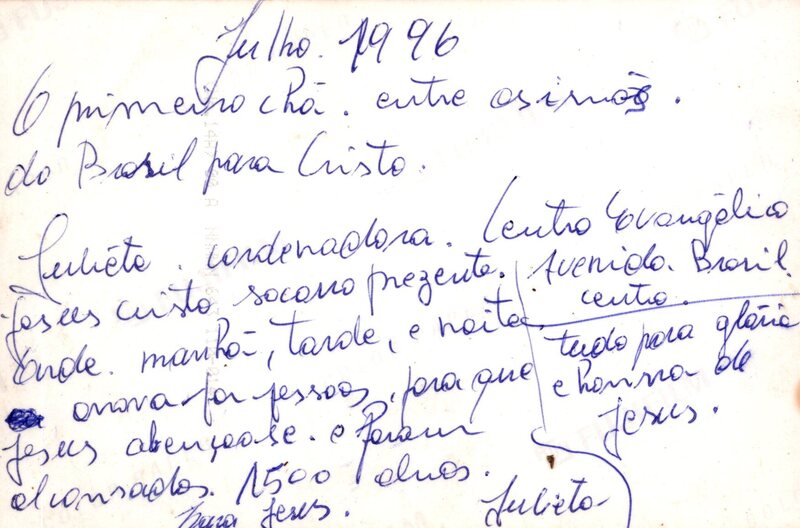 Julho. 1996
O primeiro chá. entre os irmãos.
do Brasil para Cristo.
Julieta. cordenadora. Centro Evangélico
Jesus cristo socorro prezente. Avenida. Brasil.
centro.
Onde. manhã, tarde, e noite
orava por pessoas, para que
Jesus abençoase. e foram
alcansados. 1500 almas.
Para Jesus.
tudo para glória
e honrra de
Jesus.
Julieta